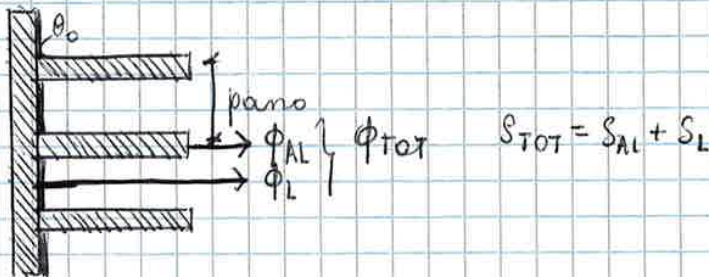 θ₀
pano
ϕ_AL } ϕ_TOT S_TOT = S_AL + S_L
ϕ_L